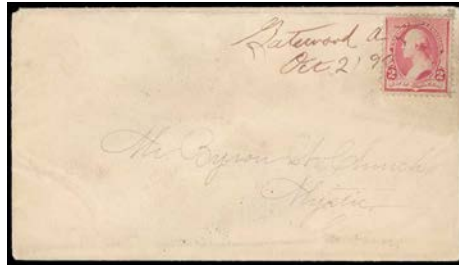 Gatewood a
Oct 2 '90
2 2
Mr Byron H. Church
Mystic
Conn